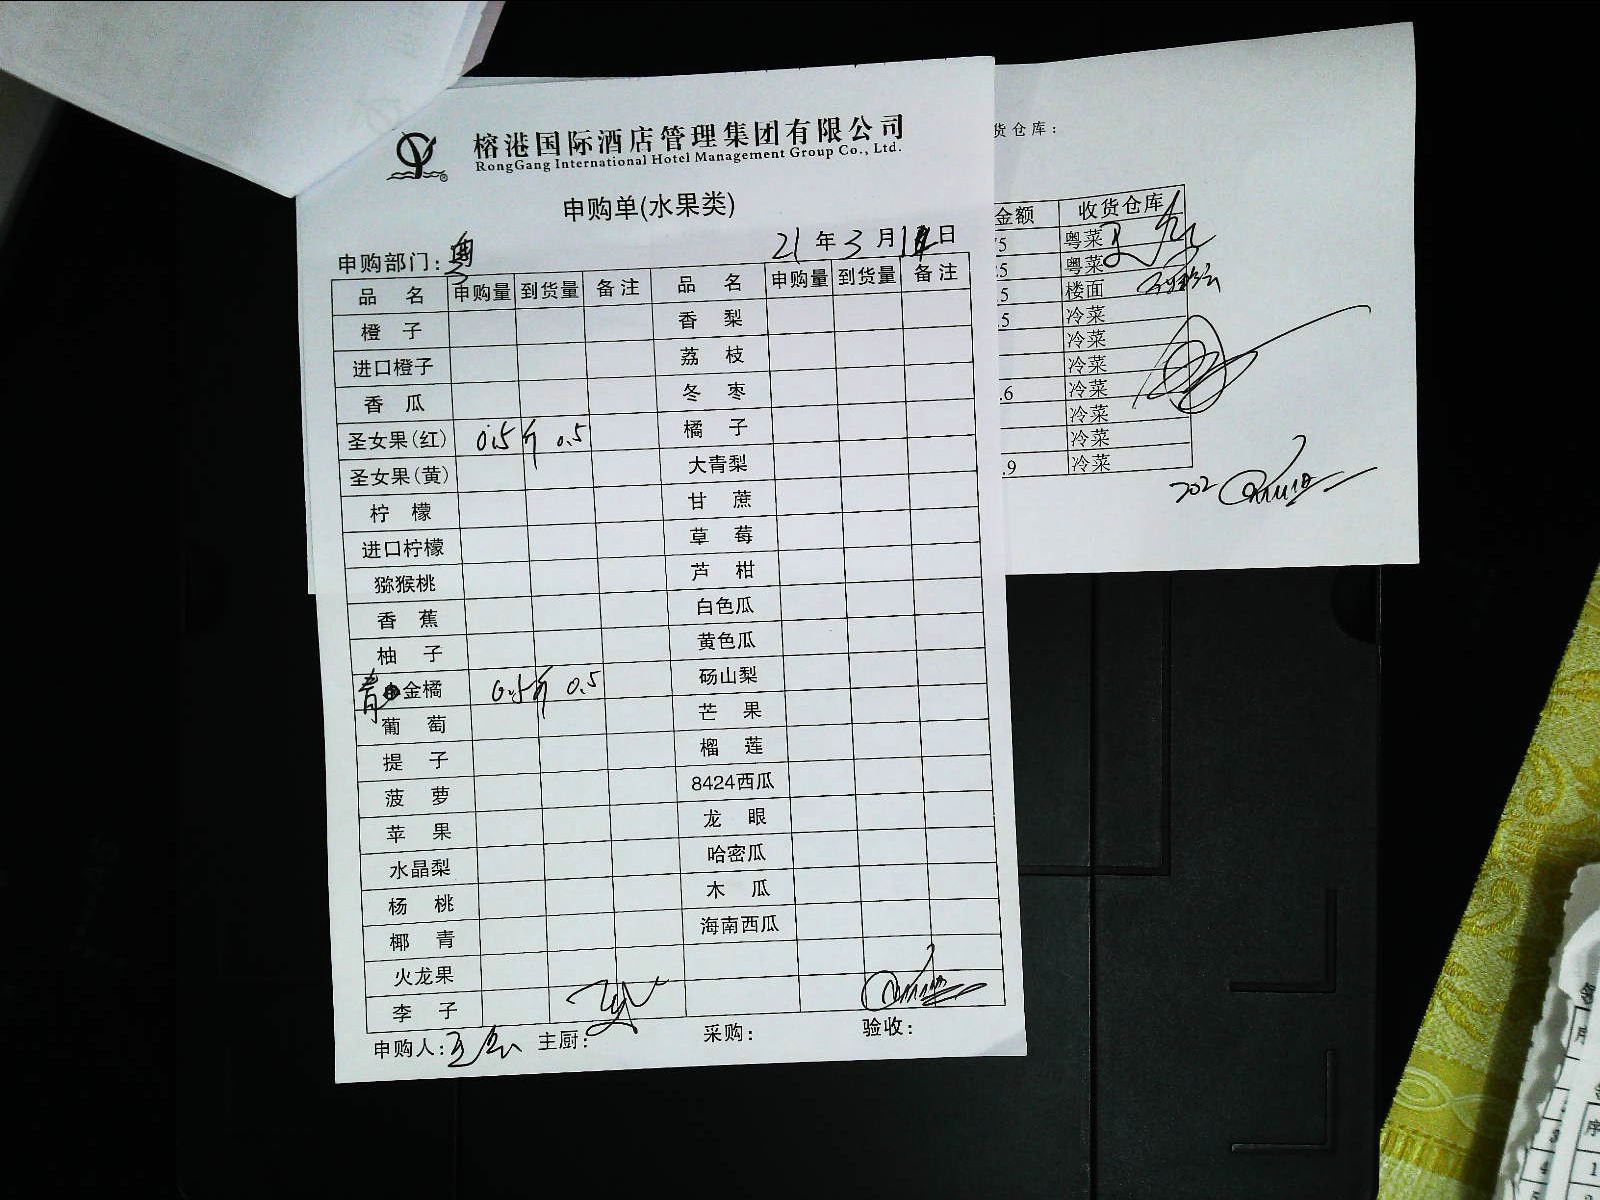 榕港国际酒店管理集团有限公司
RongGang International Hotel Management Group Co., Ltd.
申购单(水果类)
申购部门: 粤 21 年 3 月 日
品 名 申购量 到货量 备注 品 名 申购量 到货量 备注
橙 子 香 梨
进口橙子 荔 枝
香 瓜 冬 枣
圣女果(红) 0.5斤 0.5 橘 子
圣女果(黄) 大青梨
柠 檬 甘 蔗
进口柠檬 草 莓
猕猴桃 芦 柑
香 蕉 白色瓜
柚 子 黄色瓜
青金橘 0.5斤 0.5 砀山梨
葡 萄 芒 果
提 子 榴 莲
菠 萝 8424西瓜
苹 果 龙 眼
水晶梨 哈密瓜
杨 桃 木 瓜
椰 青 海南西瓜
火龙果
李 子
申购人: 主厨: 采购: 验收:
货仓库:
金额 收货仓库
75 粤菜
.5 粤菜
.5 楼面
.5 冷菜
冷菜
冷菜
.6 冷菜
冷菜
冷菜
.9 冷菜
202
领
序
3
4
序
1